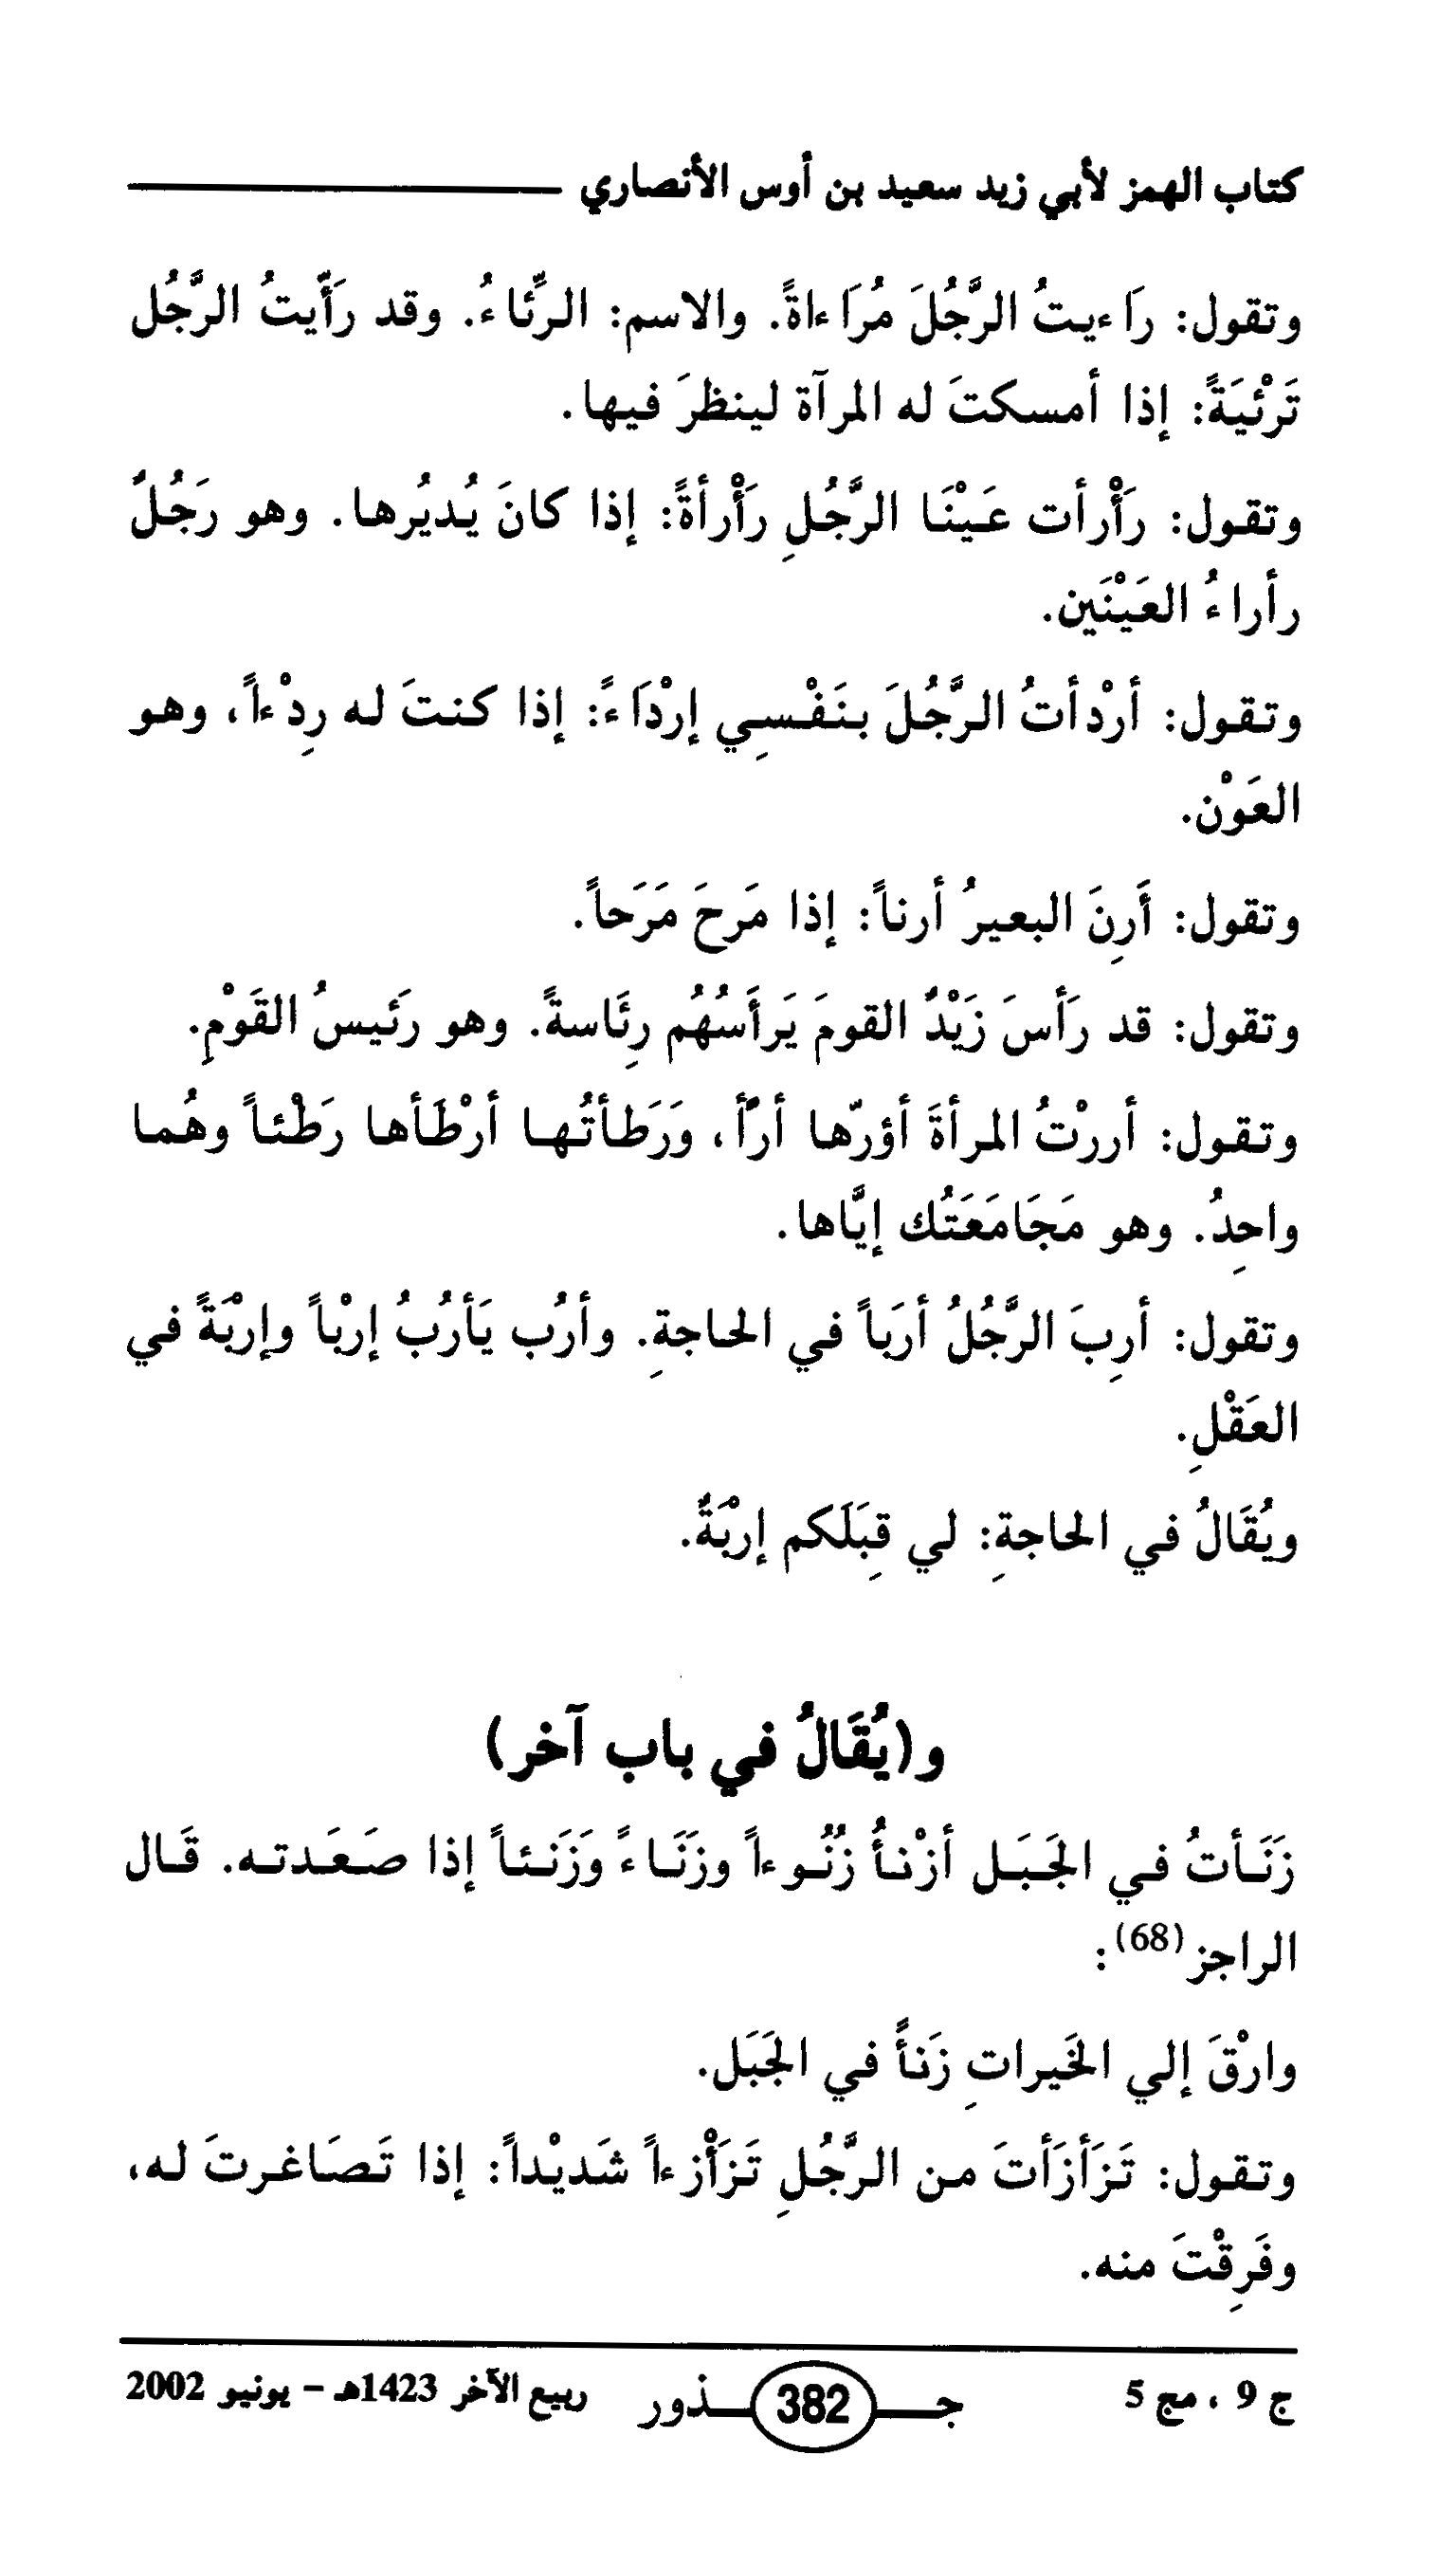 كتاب الهمز لأبي زيد سعيد بن أوس الأنصاري
وتقول: رَاءيتُ الرَّجُلَ مُرَاءاةً. والاسم: الرِّئاءُ. وقد رَأَّيتُ الرَّجُل
تَرْئيَةً: إذا أمسكتَ له المرآة لينظرَ فيها.
وتقول: رَأْرأت عَيْنَا الرَّجُلِ رَأْرأةً: إذا كانَ يُديُرها. وهو رَجُلٌ
رأراءُ العَيْنَين.
وتقول: أرْدأتُ الرَّجُلَ بنَفْسِي إرْدَاءً: إذا كنتَ له رِدْءاً، وهو
العَوْن.
وتقول: أَرِنَ البعيرُ أرناً: إذا مَرحَ مَرَحاً.
وتقول: قد رَأسَ زَيْدٌ القومَ يَرأَسُهُم رِئَاسةً. وهو رَئيسُ القَوْمِ.
وتقول: أررْتُ المرأةَ أؤرّها أرّاً، وَرَطأتُها أرْطَأها رَطْئاً وهُما
واحِدُ. وهو مَجَامَعَتُك إيَّاها.
وتقول: أرِبَ الرَّجُلُ أرَباً في الحاجةِ. وأرُب يَأرُبُ إرْباً وإرْبَةً في
العَقْلِ.
ويُقَالُ في الحاجةِ: لي قِبَلَكم إرْبَةٌ.
و(يُقَالُ في باب آخر)
زَنَأتُ في الجَبَل أزْنأُ زُنُوءاً وزَنَاءً وَزَنئاً إذا صَعَدته. قَال
الراجز(68):
وارْقَ إلي الخَيراتِ زَنأً في الجَبَل.
وتقول: تَزَأزَأتَ من الرَّجُلِ تَزَأْزءاً شَديْداً: إذا تَصَاغرتَ له،
وفَرِقْتَ منه.
ج 9 ، مج 5 جـ 382 ـذور ربيع الآخر 1423هـ - يونيو 2002